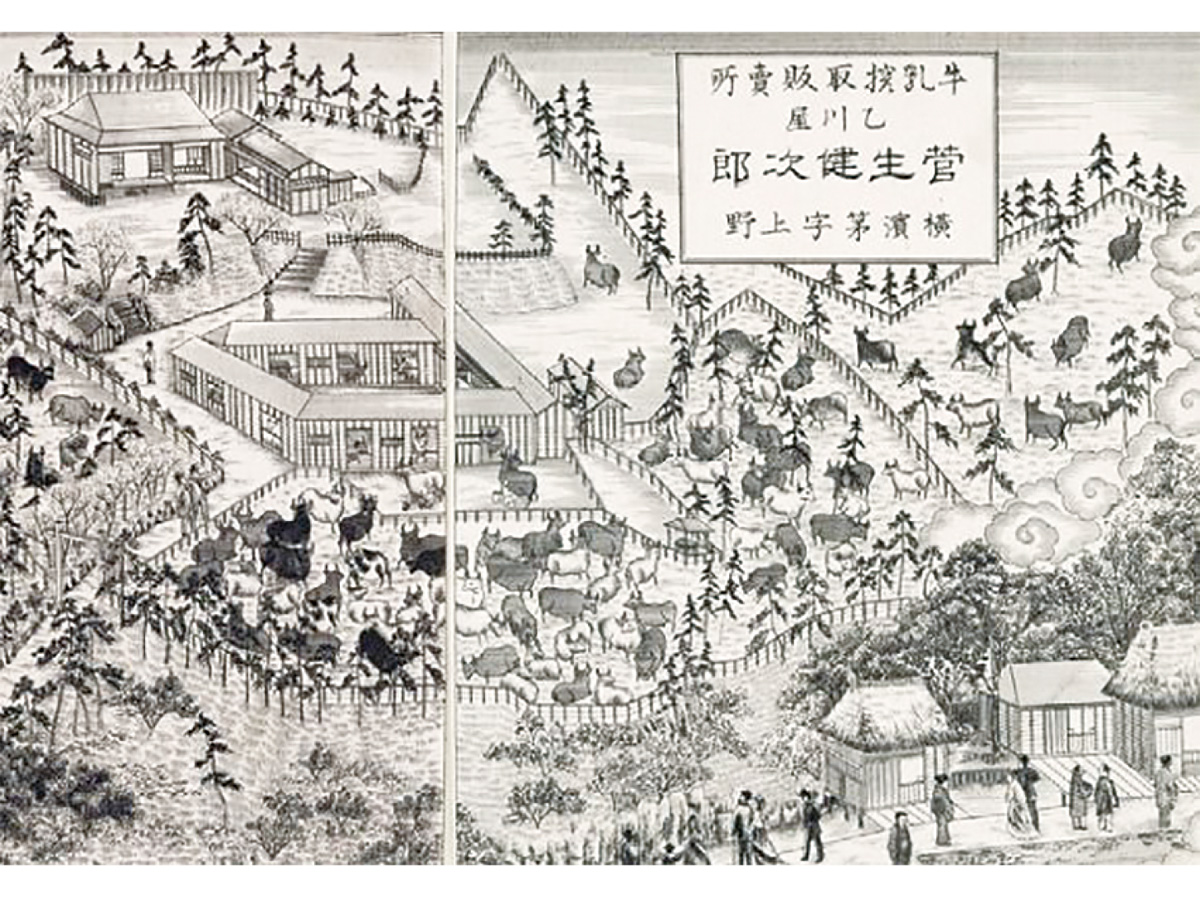 牛乳搾取販賣所
乙川屋
菅生健次郎
横濱茅字上野